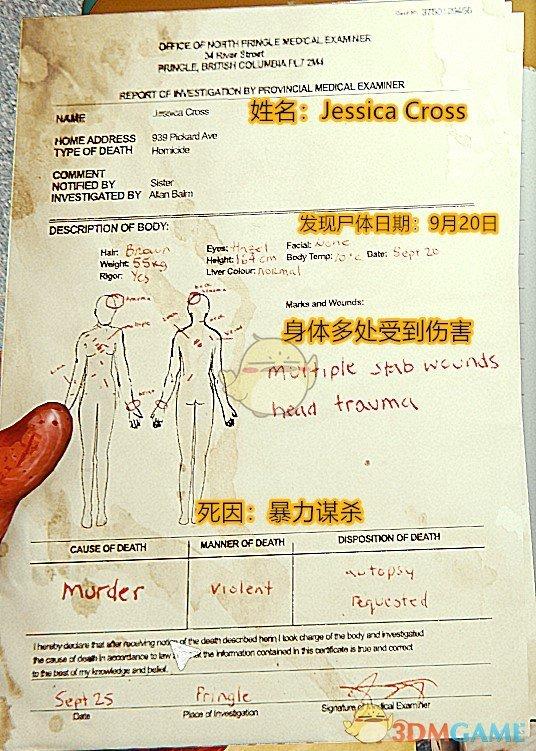 OFFICE OF NORTH PRINGLE MEDICAL EXAMINER
34 River Street
PRINGLE, BRITISH COLUMBIA
REPORT OF INVESTIGATION BY PROVINCIAL MEDICAL EXAMINER
NAME Jessica Cross
姓名：Jessica Cross
HOME ADDRESS 939 Pickard Ave
TYPE OF DEATH Homicide
COMMENT
NOTIFIED BY Sister
INVESTIGATED BY Allan Balm
发现尸体日期：9月20日
DESCRIPTION OF BODY:
Hair: Brown Eyes: Hazel Facial: None
Weight: 55kg Height: 164cm Body Temp: 10°c Date: Sept 20
Rigor: Yes Liver Colour: normal
Marks and Wounds:
身体多处受到伤害
multiple stab wounds
head trauma
死因：暴力谋杀
CAUSE OF DEATH MANNER OF DEATH DISPOSITION OF DEATH
murder violent autopsy
requested
I hereby declare that after receiving notice of the death described herin I took charge of the body and investigated
the cause of death in accordance to law the information contained in this certificate is true and correct
to the best of my knowledge and belief.
Sept 25 Pringle
Date Place of Investigation Signature of Medical Examiner
3DMGAME